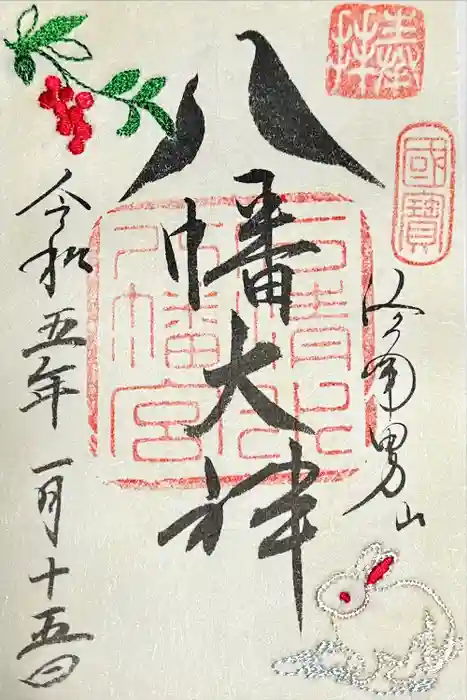 奉拝
國寶
洛南男山
八幡大神
石清水八幡宮
令和五年一月十五日